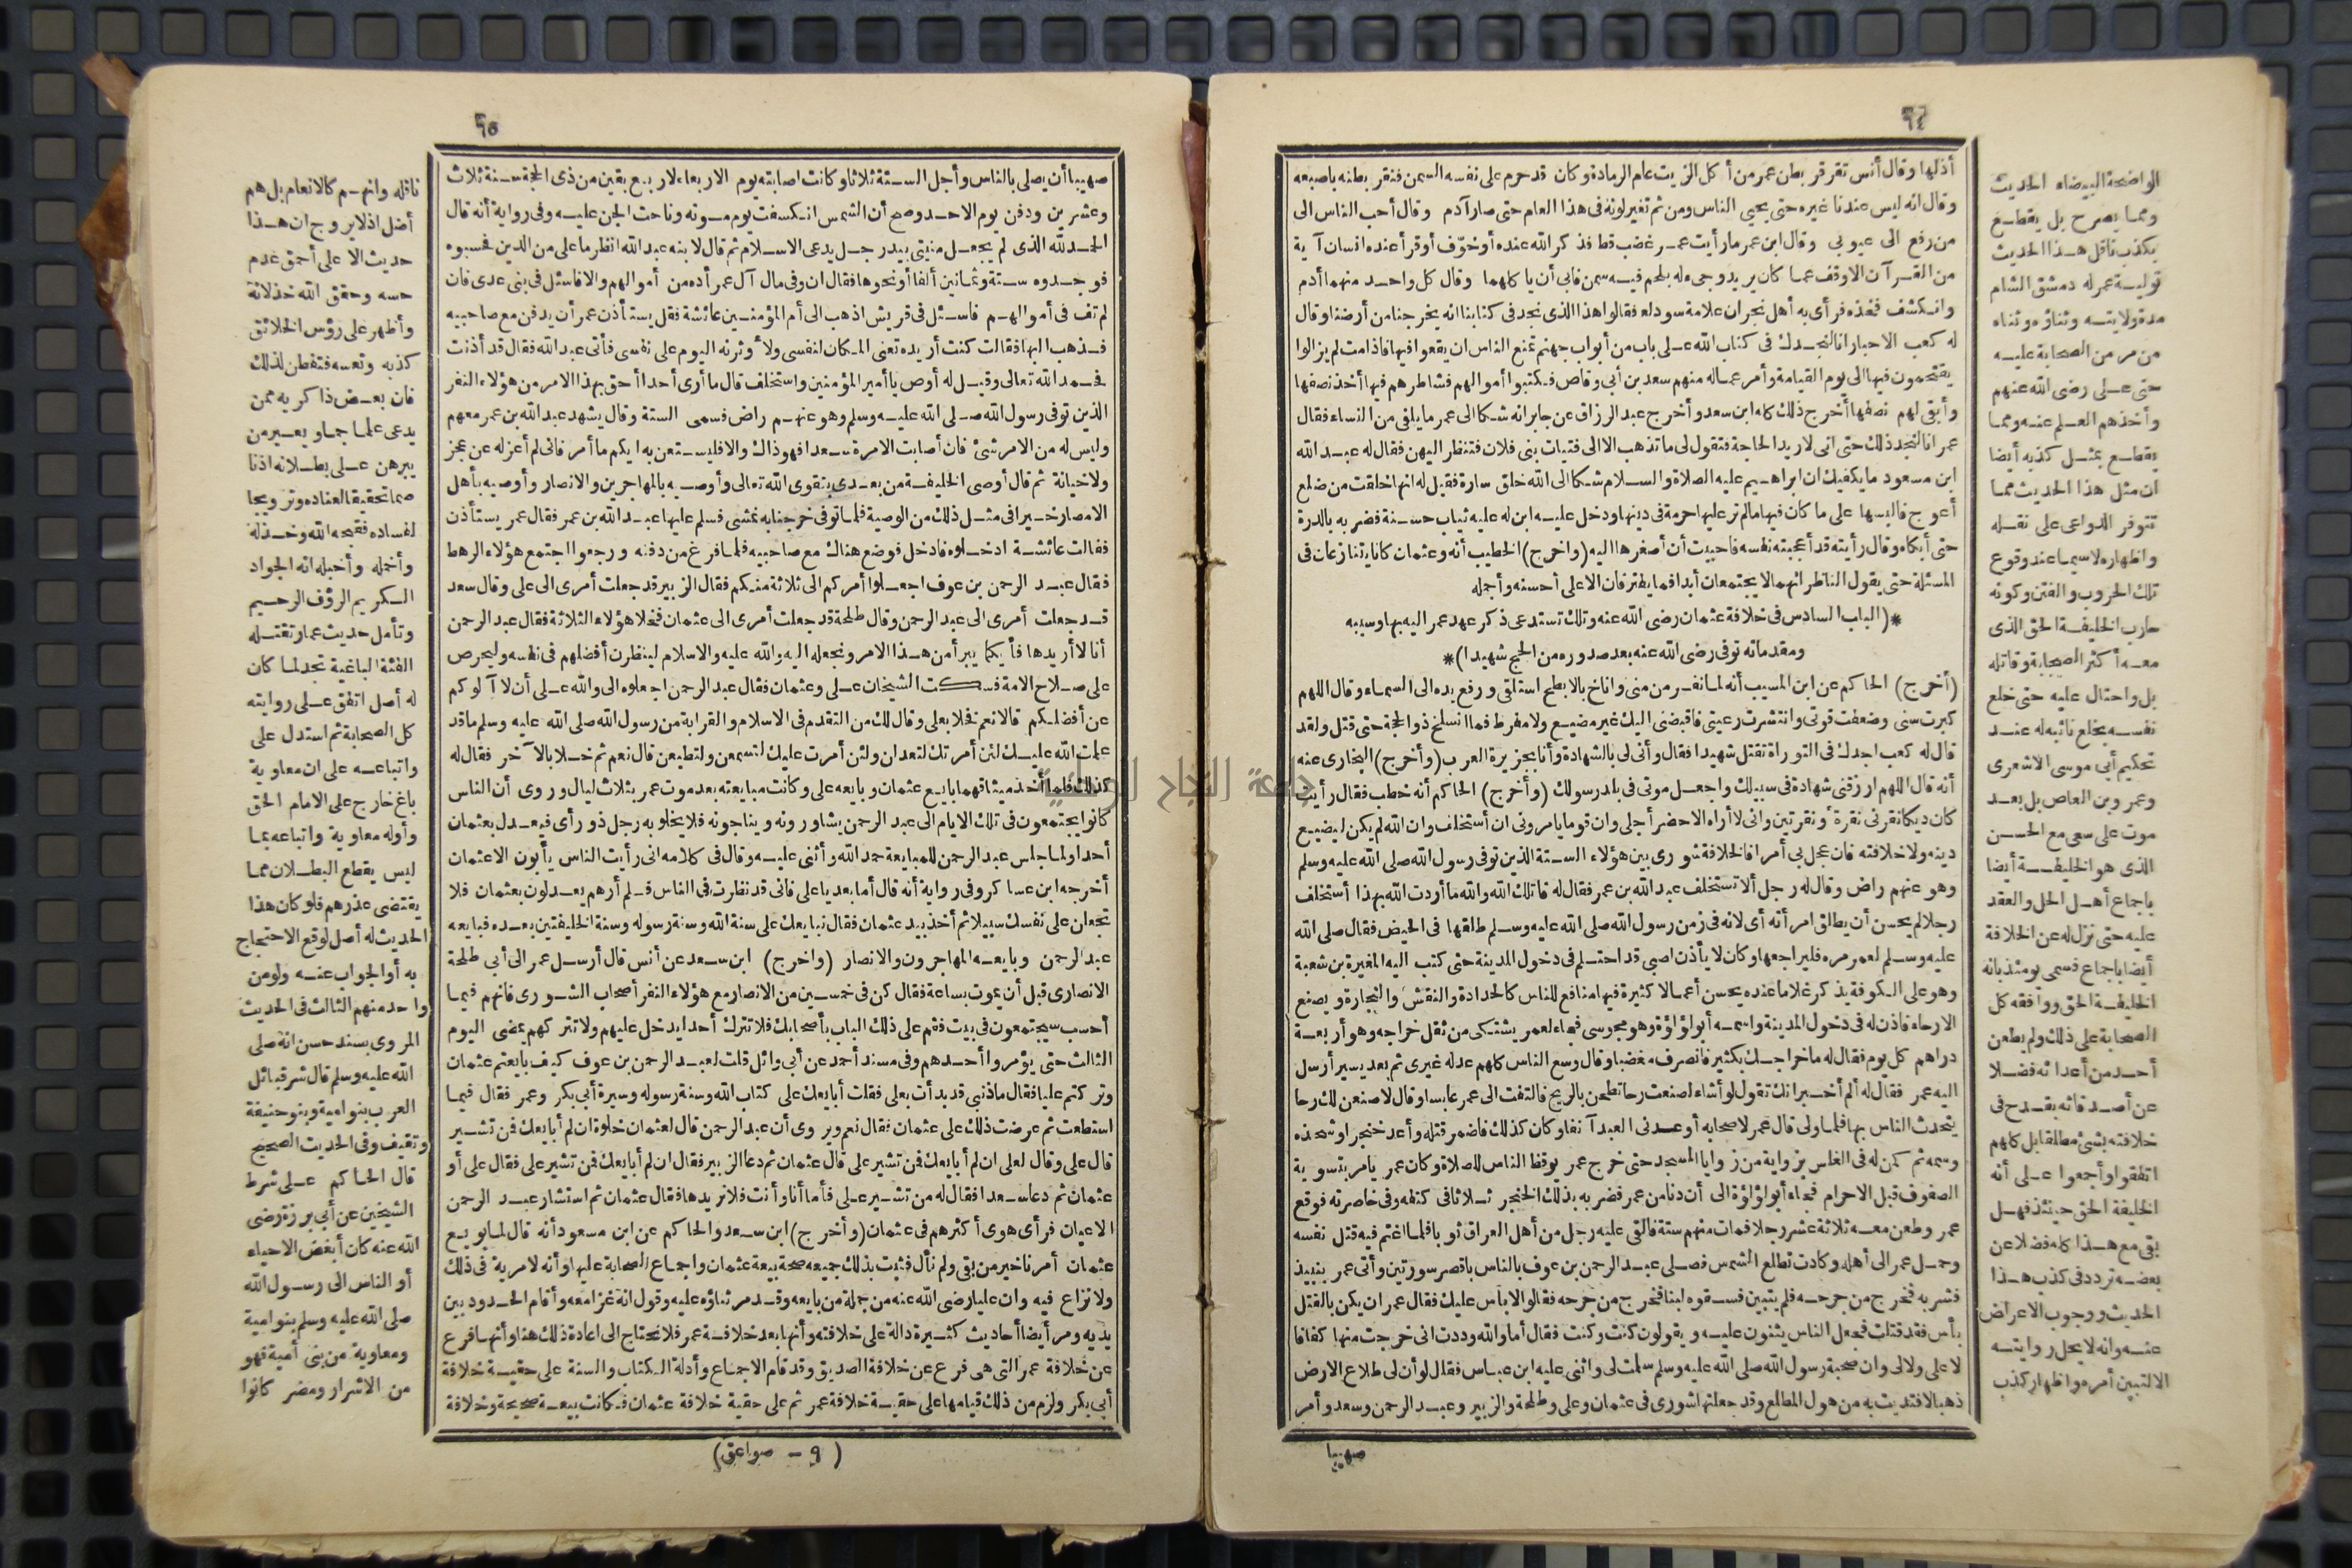 ٦٤
أذلها وقال أنس تقرقر بطن عمر من أكل الزيت عام الرمادة وكان قد حرم على نفسه السمن فنقر بطنه باصبعه
وقال انه ليس عندنا غيره حتى يحيى الناس ومن ثم تغير لونه فى هذا العام حتى صار آدم وقال أحب الناس الى
من رفع الى عيوبى وقال ابن عمر مارأيت عمر غضب قط فذكر الله عنده أوخوّف أوقرأ عنده انسان آية
من القرآن الاوقف عما كان يريد وجىء له بلحم فيه سمن فابى أن ياكلهما وقال كل واحد منهما أدم
وانكشف فخذه فرأى به أهل نجران علامة سوداء فقالوا هذا الذى نجد فى كتابنا انه يخرجنا من أرضنا وقال
له كعب الاحبار انا لنجدك فى كتاب الله على باب من أبواب جهنم تمنع الناس ان يقعوا فيها فاذا مت لم يزالوا
يقتحمون فيها الى يوم القيامة وأمر عماله منهم سعد بن أبى وقاص فكتبوا أموالهم فشاطرهم فيها أخذ نصفها
وأبقى لهم نصفها أخرج ذلك كله ابن سعد وأخرج عبد الرزاق عن جابر انه شكا الى عمر مايلقى من النساء فقال
عمر انا لنجد ذلك حتى انى لاريد الحاجة فتقول لى ماتذهب الا الى فتيات بنى فلان فتنظر اليهن فقال له عبد الله
ابن مسعود مايكفيك ان ابراهيم عليه الصلاة والسلام شكا الى الله خلق سارة فقيل له انها خلقت من ضلع
أعوج فالبسها على ما كان فيها مالم تر عليها حرمة فى دينها ودخل عليه ابن له عليه ثياب حسنة فضربه بالدرة
حتى أبكاه وقال رأيته قد أعجبته نفسه فاحببت أن أصغرها اليه (واخرج) الخطيب أنه وعثمان كانا يتنازعان فى
المسئلة حتى يقول الناظر انهما لا يجتمعان أبدا فما يفترقان الاعلى أحسنه وأجمله
*(الباب السادس فى خلافة عثمان رضى الله عنه وتلك تستدعى ذكر عهد عمر اليه بها وسببه
ومقدماته توفى رضى الله عنه بعد صدوره من الحج شهيدا)*
(أخرج) الحاكم عن ابن المسيب أنه لما نفر من منى واناخ بالابطح استلقى ورفع يده الى السماء وقال اللهم
كبرت سنى وضعفت قوتى وانتشرت رعيتى فاقبضنى اليك غير مضيع ولا مفرط فما انسلخ ذوالحجة حتى قتل ولقد
قال له كعب اجدك فى التوراة تقتل شهيدا فقال وأنى لى بالشهادة وأنا بجزيرة العرب (وأخرج) البخارى عنه
أنه قال اللهم ارزقنى شهادة فى سبيلك واجعل موتى فى بلد رسولك (وأخرج) الحاكم أنه خطب فقال رأيت
كان ديكا نقرنى نقرة أو نقرتين وانى لا أراه الاحضر أجلى وان قوما يامرونى ان أستخلف وان الله لم يكن ليضيع
دينه ولا خلافته فان عجل بى أمر فالخلافة شورى بين هؤلاء الستة الذين توفى رسول الله صلى الله عليه وسلم
وهو عنهم راض وقال له رجل ألا تستخلف عبد الله بن عمر فقال له قاتلك الله والله ما أردت الله بهذا أستخلف
رجلا لم يحسن أن يطلق امرأته أى لانه فى زمن رسول الله صلى الله عليه وسلم طلقها فى الحيض فقال صلى الله
عليه وسلم لعمر مره فليراجعها وكان لا يأذن لصبى قد احتلم فى دخول المدينة حتى كتب اليه المغيرة بن شعبة
وهو على الكوفة يذكر غلاما عنده يحسن أعمالا كثيرة فيها منافع للناس كالحدادة والنقش والنجارة ويصنع
الارحاء فاذن له فى دخول المدينة واسمه أبو لؤلؤة وهو مجوسى فجاء لعمر يشتكى من ثقل خراجه وهو أربعة
دراهم كل يوم فقال له ماخراجك بكثير فانصرف مغضبا وقال وسع الناس كلهم عدله غيرى ثم بعد يسير أرسل
اليه عمر فقال له ألم أخبر انك تقول لو أشاء لصنعت رحا تطحن بالريح فالتفت الى عمر عابسا وقال لاصنعن لك رحا
يتحدث الناس بها فلما ولى قال عمر لاصحابه أوعدنى العبد آنفا وكان كذلك فاضمر قتله وأعد خنجرا وشحذه
وسمه ثم كمن له فى الغلس بزاوية من زوايا المسجد حتى خرج عمر يوقظ الناس للصلاة وكان عمر يامر بتسوية
الصفوف قبل الاحرام فجاء أبو لؤلؤة الى أن دنا من عمر فضربه بذلك الخنجر ثلاثا فى كتفه وفى خاصرته فوقع
عمر وطعن معه ثلاثة عشر رجلا فمات منهم ستة فالقى عليه رجل من أهل العراق ثوبا فلما اغتم فيه قتل نفسه
وحمل عمر الى أهله وكادت تطلع الشمس فصلى عبد الرحمن بن عوف بالناس باقصر سورتين وأتى عمر بنبيذ
فشربه فخرج من جرحه فلم يتبين فسقوه لبنا فخرج من جرحه فقالوا لا باس عليك فقال عمر ان يكن بالقتل
بأس فقد قتلت فجعل الناس يثنون عليه ويقولون كنت وكنت فقال أما والله وددت انى خرجت منها كفافا
لا على ولا لى وان صحبة رسول الله صلى الله عليه وسلم سلمت لى واثنى عليه ابن عباس فقال لو أن لى طلاع الارض
ذهبا لافتديت به من هول المطلع وقد جعلتها شورى فى عثمان وعلى وطلحة والزبير وعبد الرحمن وسعد وأمر
صهيبا
الواضحة البيضاء الحديث
ومما يصرح بل يقطع
بكذب ناقل هذا الحديث
تولية عمر له دمشق الشام
مدة ولايته وثناؤه وثناء
من مر من الصحابة عليه
حتى على رضى الله عنهم
وأخذهم العلم عنه ومما
يقطع بمثل كذبه أيضا
ان مثل هذا الحديث مما
تتوفر الدواعى على نقله
واظهاره لاسيما عند وقوع
تلك الحروب والفتن وكونه
حارب الخليفة الحق الذى
معه أكثر الصحابة وقاتله
بل واحتال عليه حتى خلع
نفسه بخلع نائبه له عند
تحكيم أبى موسى الاشعرى
وعمرو بن العاص بل بعد
موت على سعى مع الحسن
الذى هو الخليفة أيضا
باجماع أهل الحل والعقد
عليه حتى نزل له عن الخلافة
أيضا باجماع فسمى يومئذ بانه
الخليفة الحق ووافقه كل
الصحابة على ذلك ولم يطعن
أحد من أعدائه فضلا
عن أصدقائه بقدح فى
خلافته بشئ مطلقا بل كلهم
اتفقوا وأجمعوا على أنه
الخليفة الحق حينئذ فهل
بقى مع هذا كله فضلا عن
بعضه تردد فى كذب هذا
الحديث ووجوب الاعراض
عنه وانه لا يحل روايته
الا لتبيين أمره واظهار كذب
٦٥
صهيبا أن يصلى بالناس وأجل الستة ثلاثا وكانت اصابته يوم الاربعاء لاربع بقين من ذى الحجة سنة ثلاث
وعشرين ودفن يوم الاحد وصح أن الشمس انكسفت يوم موته وناحت الجن عليه وفى رواية أنه قال
الحمد لله الذى لم يجعل منيتى بيد رجل يدعى الاسلام ثم قال لابنه عبد الله انظر ما على من الدين فحسبوه
فوجدوه ستة وثمانين ألفا أو نحوها فقال ان وفى مال آل عمر أده من أموالهم والا فاسئل فى بنى عدى فان
لم تف فى أموالهم فاسئل فى قريش اذهب الى أم المؤمنين عائشة فقل يستأذن عمر أن يدفن مع صاحبيه
فذهب اليها فقالت كنت أريده تعنى المكان لنفسى ولأوثرنه اليوم على نفسى فأتى عبد الله فقال قد أذنت
فحمد الله تعالى وقيل له أوص يا أمير المؤمنين واستخلف قال ما أرى أحدا أحق بهذا الامر من هؤلاء النفر
الذين توفى رسول الله صلى الله عليه وسلم وهو عنهم راض فسمى الستة وقال يشهد عبد الله بن عمر معهم
وليس له من الامر شئ فان أصابت الامرة سعدا فهو ذاك والا فليستعن به ايكم ما أمر فانى لم أعزله عن عجز
ولا خيانة ثم قال أوصى الخليفة من بعدى بتقوى الله تعالى وأوصيه بالمهاجرين والانصار وأوصيه بأهل
الامصار خيرا فى مثل ذلك من الوصية فلما توفى خرجنا به نمشى فسلم عليها عبد الله بن عمر فقال عمر يستأذن
فقالت عائشة ادخلوه فادخل فوضع هناك مع صاحبيه فلما فرغ من دفنه ورجعوا اجتمع هؤلاء الرهط
فقال عبد الرحمن بن عوف اجعلوا أمركم الى ثلاثة منكم فقال الزبير قد جعلت أمرى الى على وقال سعد
قد جعلت أمرى الى عبد الرحمن وقال طلحة قد جعلت أمرى الى عثمان فخلا هؤلاء الثلاثة فقال عبد الرحمن
أنا لا أريدها فأيكما يبرأ من هذا الامر ونجعله اليه والله عليه والاسلام لينظرن أفضلهم فى نفسه وليحرص
على صلاح الامة فسكت الشيخان على وعثمان فقال عبد الرحمن اجعلوه الى والله على أن لا آلوكم
عن أفضلكم قالا نعم فخلا بعلى وقال لك من التقدم فى الاسلام والقرابة من رسول الله صلى الله عليه وسلم ماقد
علمت الله عليك لئن أمرتك لتعدلن ولئن أمرت عليك لتسمعن ولتطيعن قال نعم ثم خلا بالآخر فقال له
كذلك فلما أخذ ميثاقهما بايع عثمان وبايعه على وكانت مبايعته بعد موت عمر بثلاث ليال وروى أن الناس
كانوا يجتمعون فى تلك الايام الى عبد الرحمن يشاورونه ويناجونه فلا يخلو به رجل ذو رأى فيعدل بعثمان
أحدا ولما جلس عبد الرحمن للمبايعة حمد الله وأثنى عليه وقال فى كلامه انى رأيت الناس يأبون الا عثمان
أخرجه ابن عساكر وفى رواية أنه قال أما بعد يا على فانى قد نظرت فى الناس فلم أرهم يعدلون بعثمان فلا
تجعلن على نفسك سبيلا ثم أخذ بيد عثمان فقال نبايعك على سنة الله وسنة رسوله وسنة الخليفتين بعده فبايعه
عبد الرحمن وبايعه المهاجرون والانصار (واخرج) ابن سعد عن أنس قال أرسل عمر الى أبى طلحة
الانصارى قبل أن يموت بساعة فقال كن فى خمسين من الانصار مع هؤلاء النفر أصحاب الشورى فانهم فيما
أحسب سيجتمعون فى بيت فقم على ذلك الباب بأصحابك فلا تترك أحدا يدخل عليهم ولا تتركهم يمضى اليوم
الثالث حتى يؤمروا أحدهم وفى مسند أحمد عن أبى وائل قلت لعبد الرحمن بن عوف كيف بايعتم عثمان
وتركتم عليا فقال ماذنبى قد بدأت بعلى فقلت أبايعك على كتاب الله وسنة رسوله وسيرة أبى بكر وعمر فقال فيما
استطعت ثم عرضت ذلك على عثمان فقال نعم ويروى أن عبد الرحمن قال لعثمان خلوة ان لم أبايعك فمن تشير
قال على وقال لعلى ان لم أبايعك فمن تشير على قال عثمان ثم دعا الزبير فقال ان لم أبايعك فمن تشير على فقال على أو
عثمان ثم دعا سعدا فقال له من تشير على فأما أنا وأنت فلا نريدها فقال عثمان ثم استشار عبد الرحمن
الاعيان فرأى هوى أكثرهم فى عثمان (وأخرج) ابن سعد والحاكم عن ابن مسعود أنه قال لما بويع
عثمان أمرنا خير من بقى ولم نأل فثبت بذلك جميعه صحة بيعة عثمان واجماع الصحابة عليها وأنه لا مرية فى ذلك
ولا نزاع فيه وان عليا رضى الله عنه من جملة من بايعه وقد مر ثناؤه عليه وقوله انه غزا معه وأقام الحدود بين
يديه ومر أيضا أحاديث كثيرة دالة على خلافته وأنها بعد خلافة عمر فلا نحتاج الى اعادة ذلك هنا وأنها فرع
عن خلافة عمر التى هى فرع عن خلافة الصديق وقد قام الاجماع وأدلة الكتاب والسنة على حقية خلافة
أبى بكر ولزم من ذلك قيامها على حقية خلافة عمر ثم على حقية خلافة عثمان فكانت بيعة صحيحة وخلافة
(٩ – صواعق)
ناقله وانهم كالانعام بل هم
أضل اذ لا يروج ان هذا
حديث الا على أحمق عدم
حسه وحقق الله خذلانه
وأظهر على رؤس الخلائق
كذبه وتعسه فتفطن لذلك
فان بعض ذاكريه ممن
يدعى علما جما وبعير من
يبرهن على بطلانه اذنا
صما تحقيقا لعناده وترويجا
لفساده فقبحه الله وخذله
وأخمله وأخبله انه الجواد
الكريم الرؤف الرحيم
وتأمل حديث عمار تقتله
الفئة الباغية تجد لما كان
له أصل اتفق على روايته
كل الصحابة ثم استدل على
واتباعه على ان معاوية
باغ خارج على الامام الحق
وأوله معاوية واتباعه بما
ليس يقطع البطلان مما
يقتضى عذرهم فلو كان هذا
الحديث له أصل لوقع الاحتجاج
به أو الجواب عنه ولو من
واحد منهم الثالث فى الحديث
المروى بسند حسن انه صلى
الله عليه وسلم قال شر قبائل
العرب بنو امية وبنو حنيفة
وثقيف وفى الحديث الصحيح
قال الحاكم على شرط
الشيخين عن أبى برزة رضى
الله عنه كان أبغض الاحياء
أو الناس الى رسول الله
صلى الله عليه وسلم بنو امية
ومعاوية من بنى أمية فهو
من الاشرار ومضر كانوا
جامعة النجاح